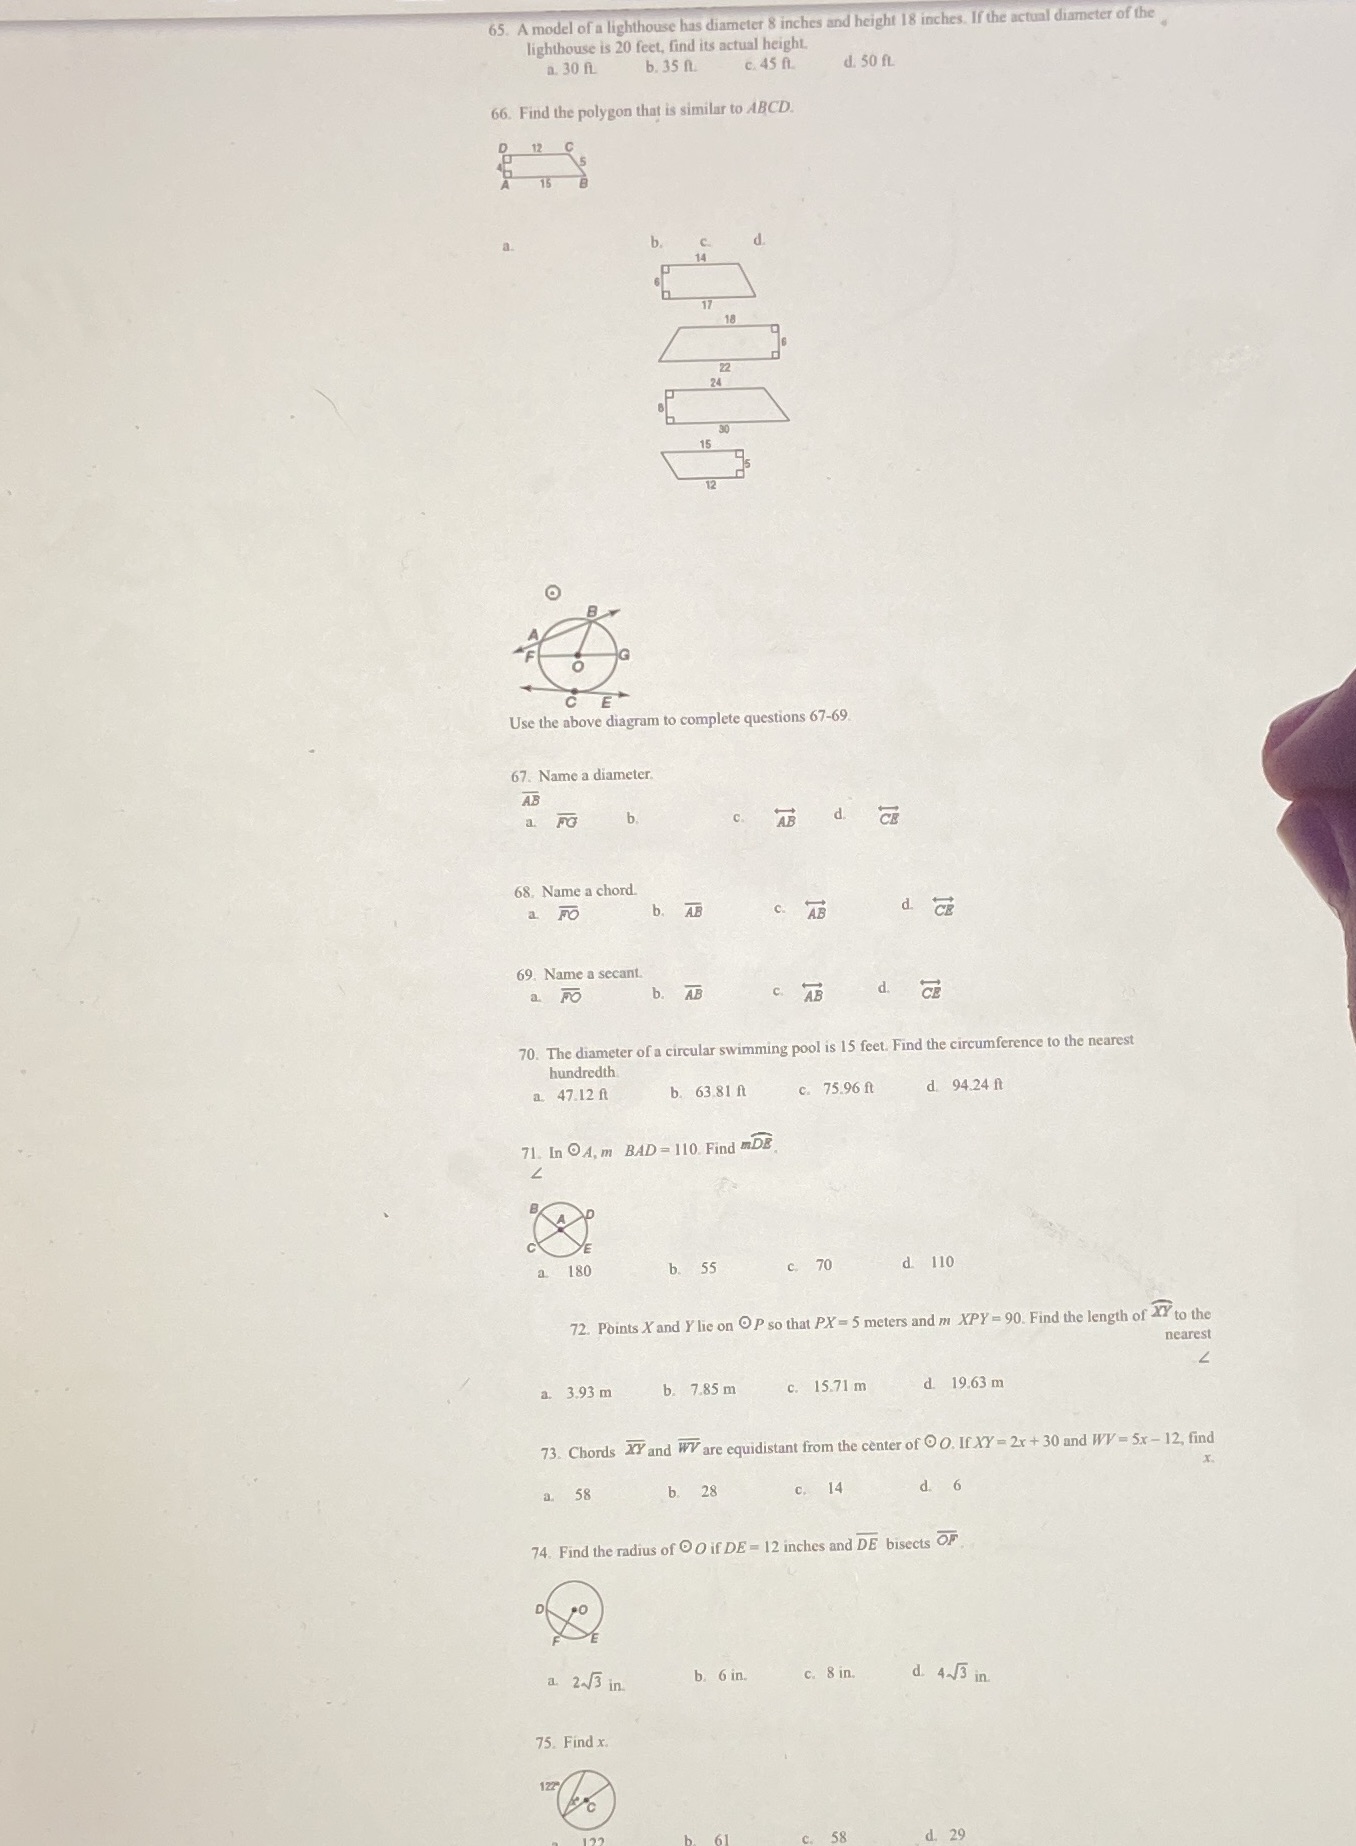 65. A model of a lighthouse has diameter 8 inches and height 18 inches. If the actual diameter of the
lighthouse is 20 feet, find its actual height.
a. 30 ft. b. 35 ft. c. 45 ft. d. 50 ft.
66. Find the polygon that is similar to ABCD.
D 12 C
4 5
A 15 B
a. b. c. d.
14
6
17
18
6
22
24
8
30
15
5
12
⊙
B
A
F G
O
C E
Use the above diagram to complete questions 67-69.
67. Name a diameter.
A̅B̅
a. F̅G̅ b. c. AB⃡ d. CE⃡
68. Name a chord.
a. F̅O̅ b. A̅B̅ c. AB⃡ d. CE⃡
69. Name a secant.
a. F̅O̅ b. A̅B̅ c. AB⃡ d. CE⃡
70. The diameter of a circular swimming pool is 15 feet. Find the circumference to the nearest
hundredth.
a. 47.12 ft b. 63.81 ft c. 75.96 ft d. 94.24 ft
71. In ⊙A, m BAD = 110. Find mDE.
∠
B D
A
C E
a. 180 b. 55 c. 70 d. 110
72. Points X and Y lie on ⊙P so that PX = 5 meters and m XPY = 90. Find the length of XY to the
nearest
∠
a. 3.93 m b. 7.85 m c. 15.71 m d. 19.63 m
73. Chords X̅Y̅ and W̅V̅ are equidistant from the center of ⊙O. If XY = 2x + 30 and WV = 5x – 12, find
x.
a. 58 b. 28 c. 14 d. 6
74. Find the radius of ⊙O if DE = 12 inches and D̅E̅ bisects O̅F̅.
D O
F E
a. 2√3 in. b. 6 in. c. 8 in. d. 4√3 in.
75. Find x.
122°
x° C
a. 122 b. 61 c. 58 d. 29